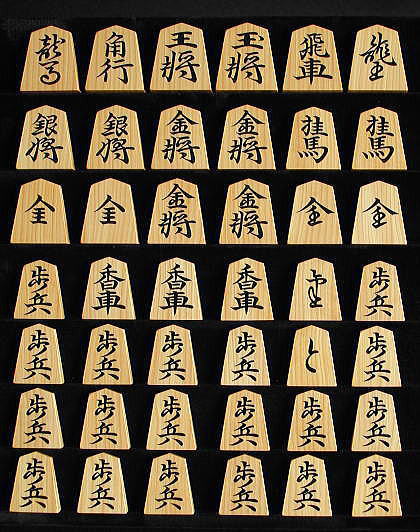 龍馬 角行 王将 玉将 飛車 龍王
銀将 銀将 金将 金将 桂馬 桂馬
全 全 金将 金将 全 全
歩兵 香車 香車 香車 歩兵
歩兵 歩兵 歩兵 歩兵 と 歩兵
歩兵 歩兵 歩兵 歩兵 歩兵 歩兵
歩兵 歩兵 歩兵 歩兵 歩兵 歩兵